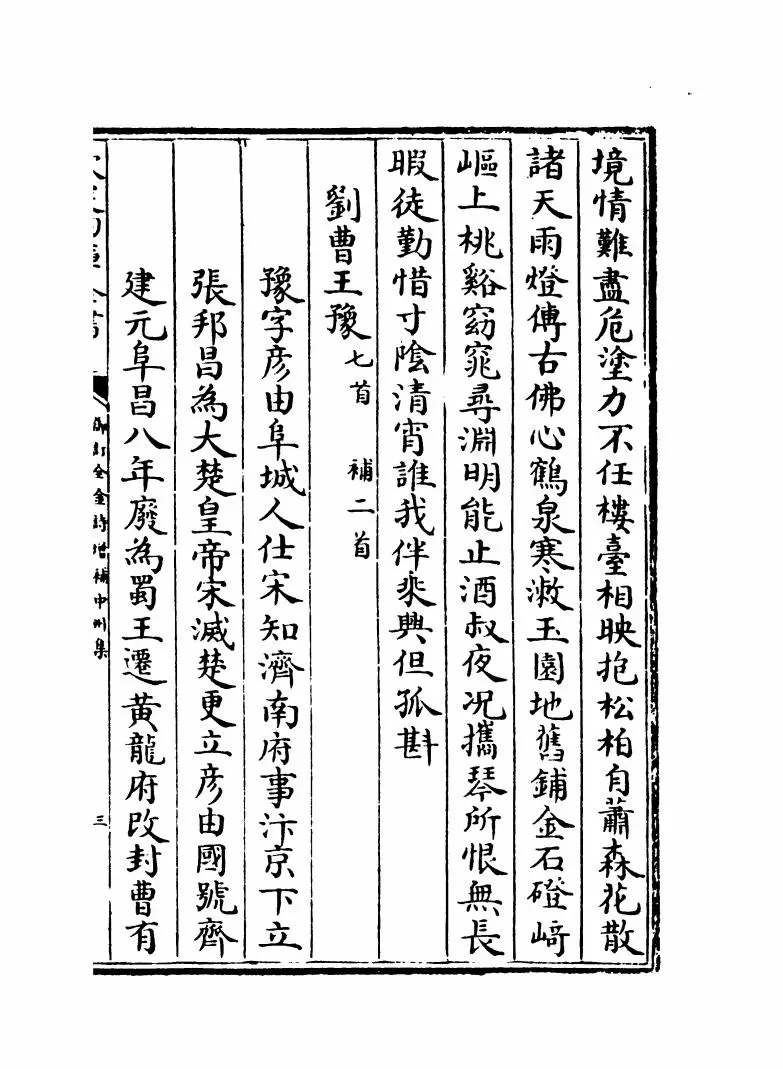 境情難盡危塗力不任樓臺相映抱松柏自蕭森花散
諸天雨燈傳古佛心鶴泉寒漱玉園地舊鋪金石磴﨑
嶇上桃谿窈窕尋淵明能止酒叔夜况攜琴所恨無長
暇徒勤惜寸陰清宵誰我伴乘興但孤斟
劉曹王豫七首 補二首
豫字彥由阜城人仕宋知濟南府事汴京下立
張邦昌為大楚皇帝宋滅楚更立彥由國號齊
建元阜昌八年廢為蜀王遷黃龍府改封曹有
御訂全金詩增補中州集
三